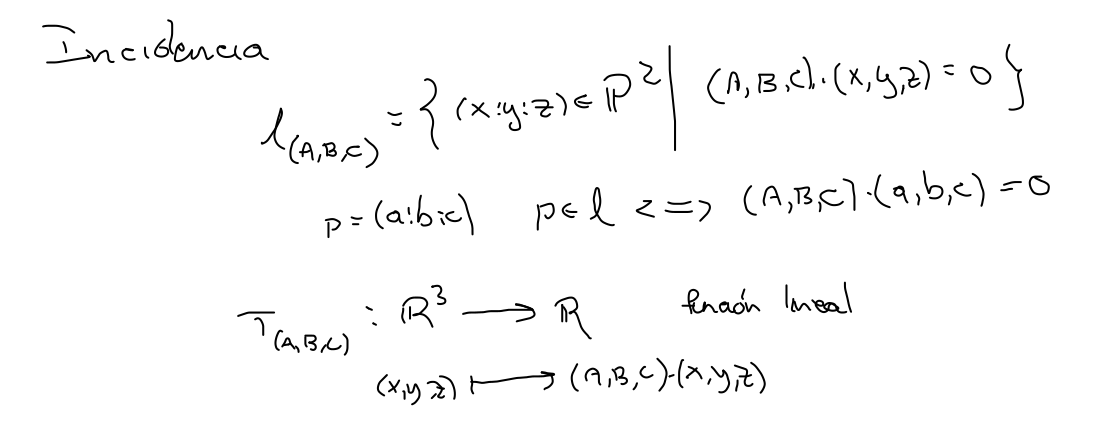 Incidencia
l_(A,B,C) = { (x:y:z) ∈ ℙ² | (A,B,C)·(x,y,z) = 0 }
p = (a:b:c) p ∈ l <=> (A,B,C)·(a,b,c) = 0
T_(A,B,C) : ℝ³ → ℝ función lineal
(x,y,z) ↦ (A,B,C)·(x,y,z)